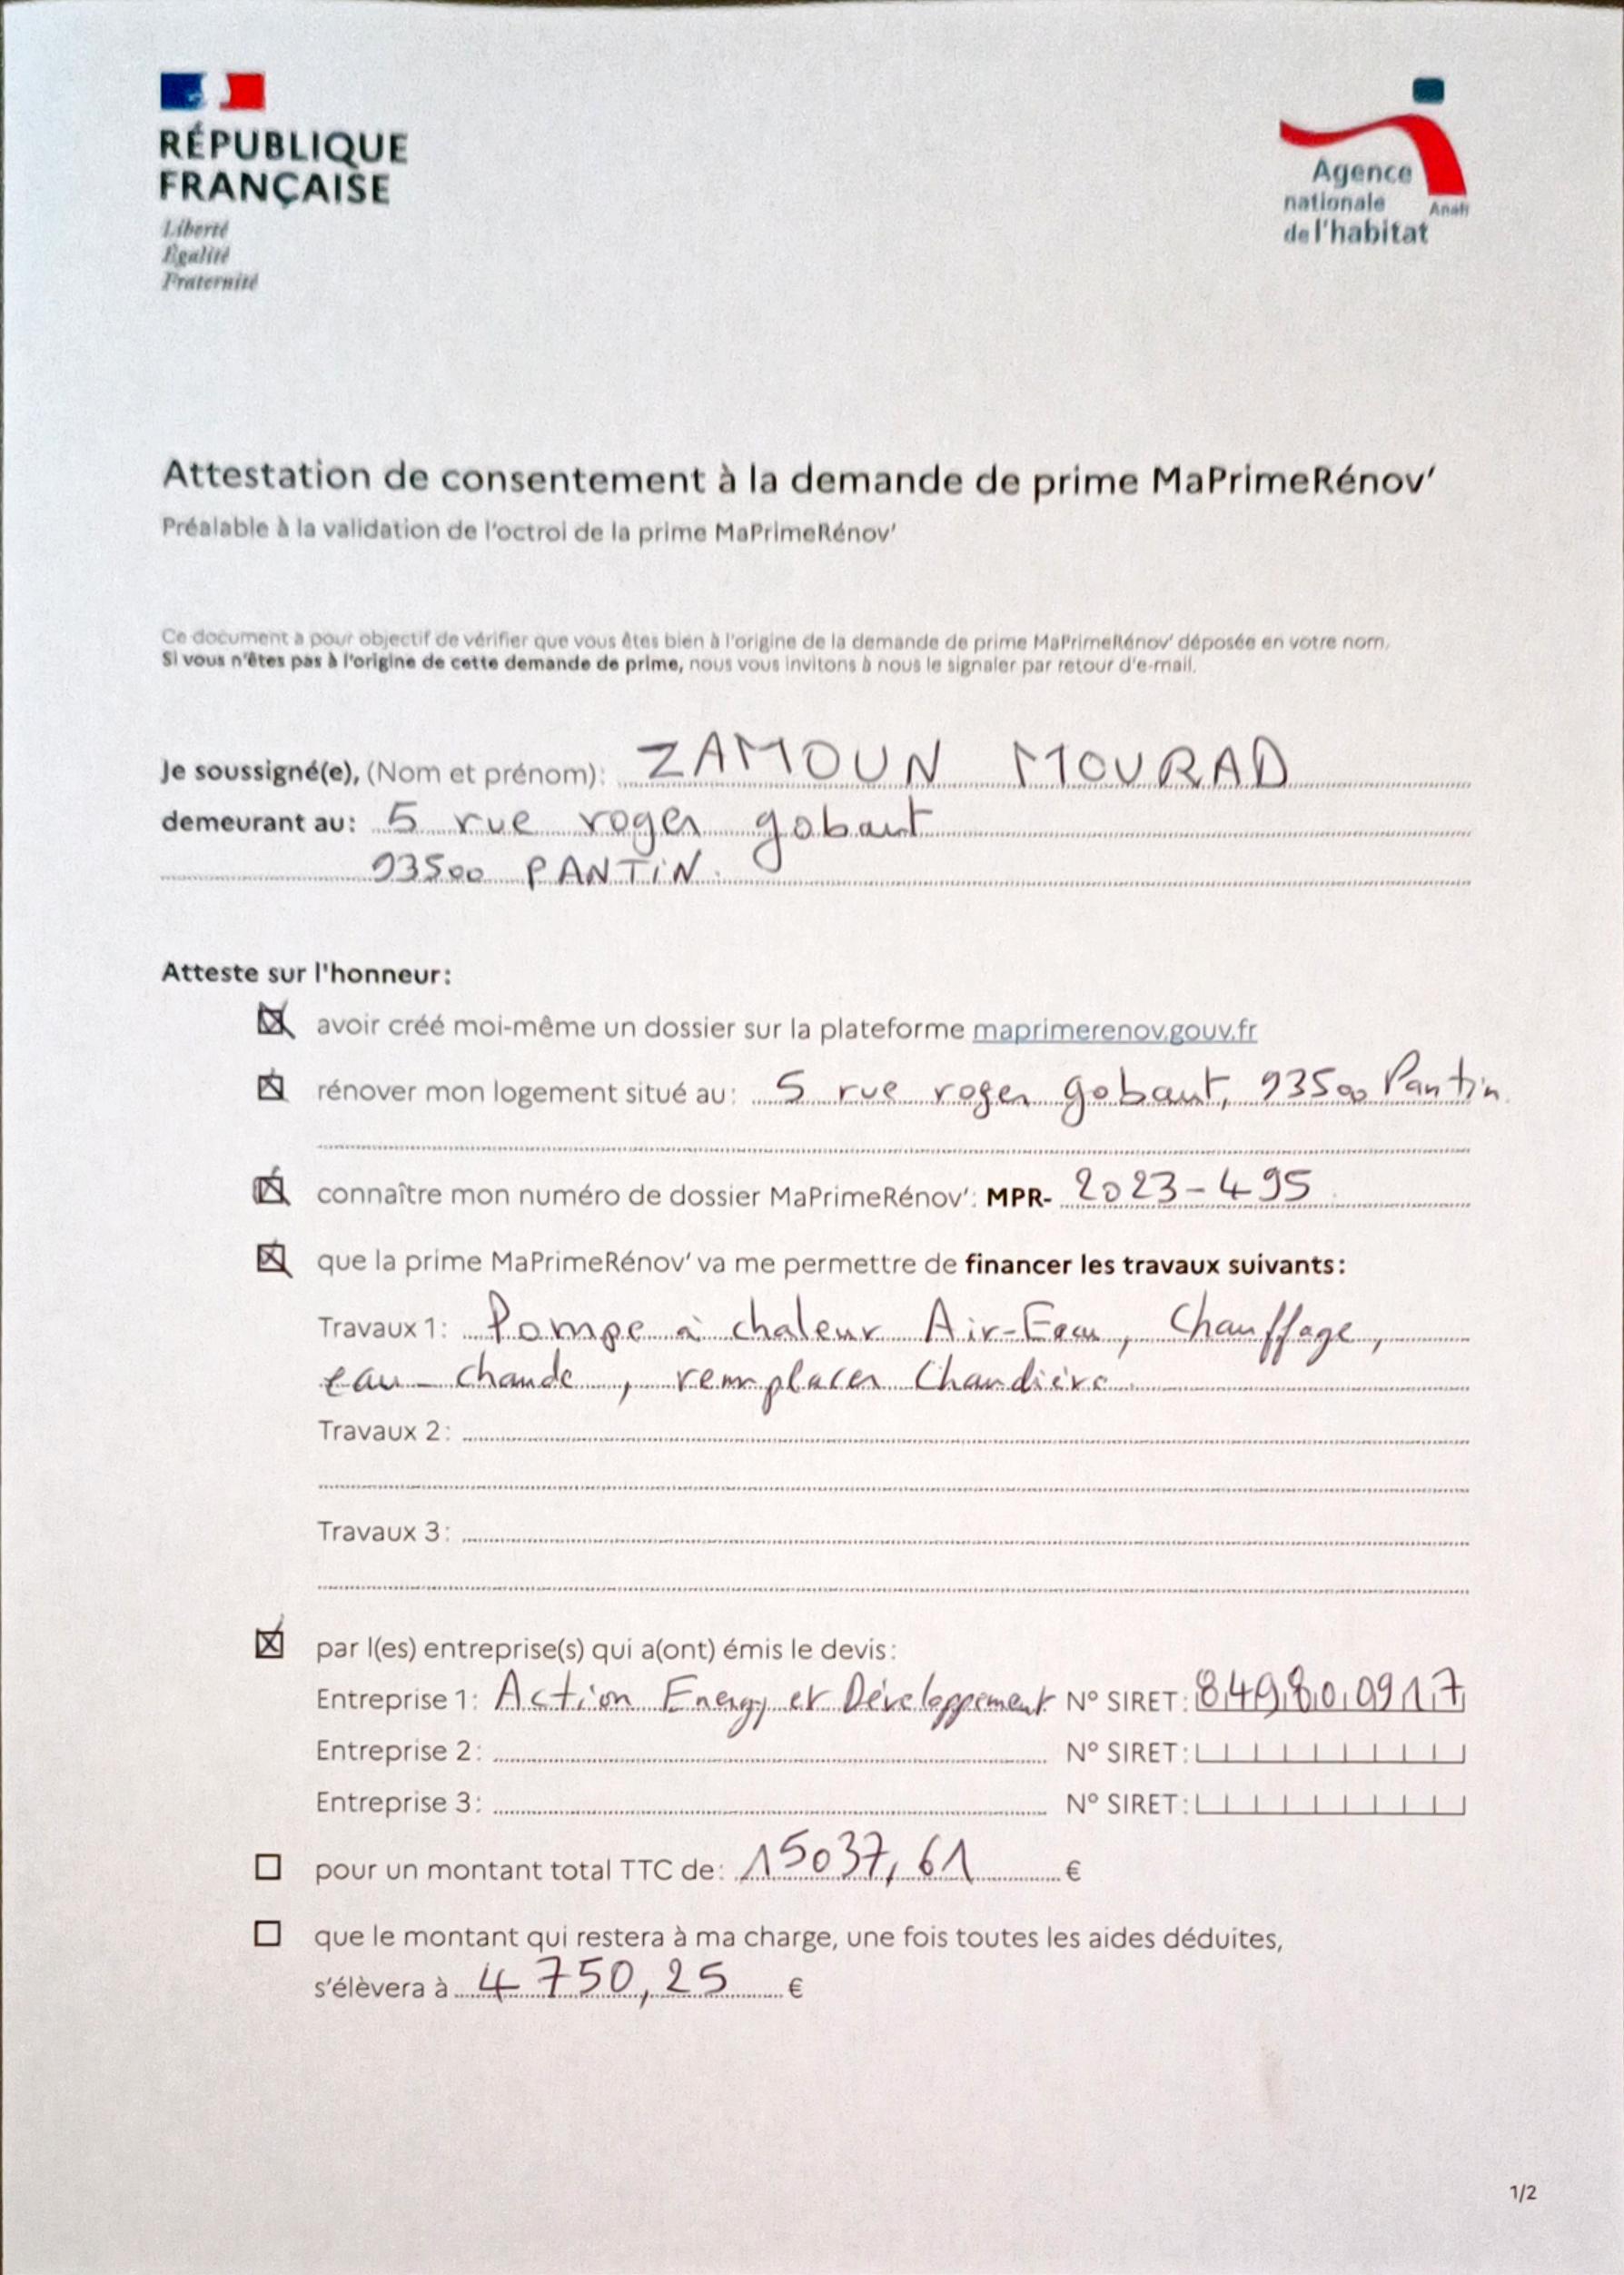 RÉPUBLIQUE
FRANÇAISE
Liberté
Égalité
Fraternité
Agence
nationale
de l'habitat
Anah
Attestation de consentement à la demande de prime MaPrimeRénov'
Préalable à la validation de l'octroi de la prime MaPrimeRénov'
Ce document a pour objectif de vérifier que vous êtes bien à l'origine de la demande de prime MaPrimeRénov' déposée en votre nom.
Si vous n'êtes pas à l'origine de cette demande de prime, nous vous invitons à nous le signaler par retour d'e-mail.
Je soussigné(e), (Nom et prénom): ZAMOUN MOURAD
demeurant au: 5 rue roger gobaut
93500 PANTIN.
Atteste sur l'honneur:
avoir créé moi-même un dossier sur la plateforme maprimerenov.gouv.fr
rénover mon logement situé au: 5 rue roger gobaut, 93500 Pantin.
connaître mon numéro de dossier MaPrimeRénov': MPR- 2023-495
que la prime MaPrimeRénov' va me permettre de financer les travaux suivants:
Travaux 1: Pompe à chaleur Air-Eau, Chauffage,
eau-chaude, remplacer Chaudière.
Travaux 2:
Travaux 3:
par l(es) entreprise(s) qui a(ont) émis le devis:
Entreprise 1: Action Energy et Développement N° SIRET: 849800917
Entreprise 2: N° SIRET:
Entreprise 3: N° SIRET:
pour un montant total TTC de: 15037,61 €
que le montant qui restera à ma charge, une fois toutes les aides déduites,
s'élèvera à 4750,25 €
1/2